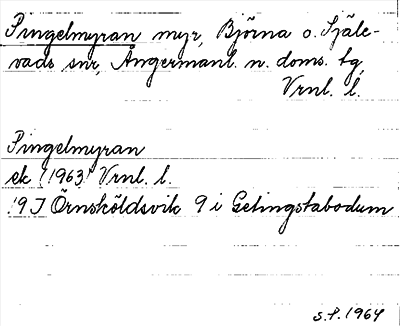 Pingelmyran myr, Björna o. Själe-
vads snr, Ångermanl. n. doms. tg,
Vrnl. l.
Pingelmyran
ek (1963) Vrnl. l.
19J Örnsköldsvik 9 i Getingstabodum
s.f. 1964